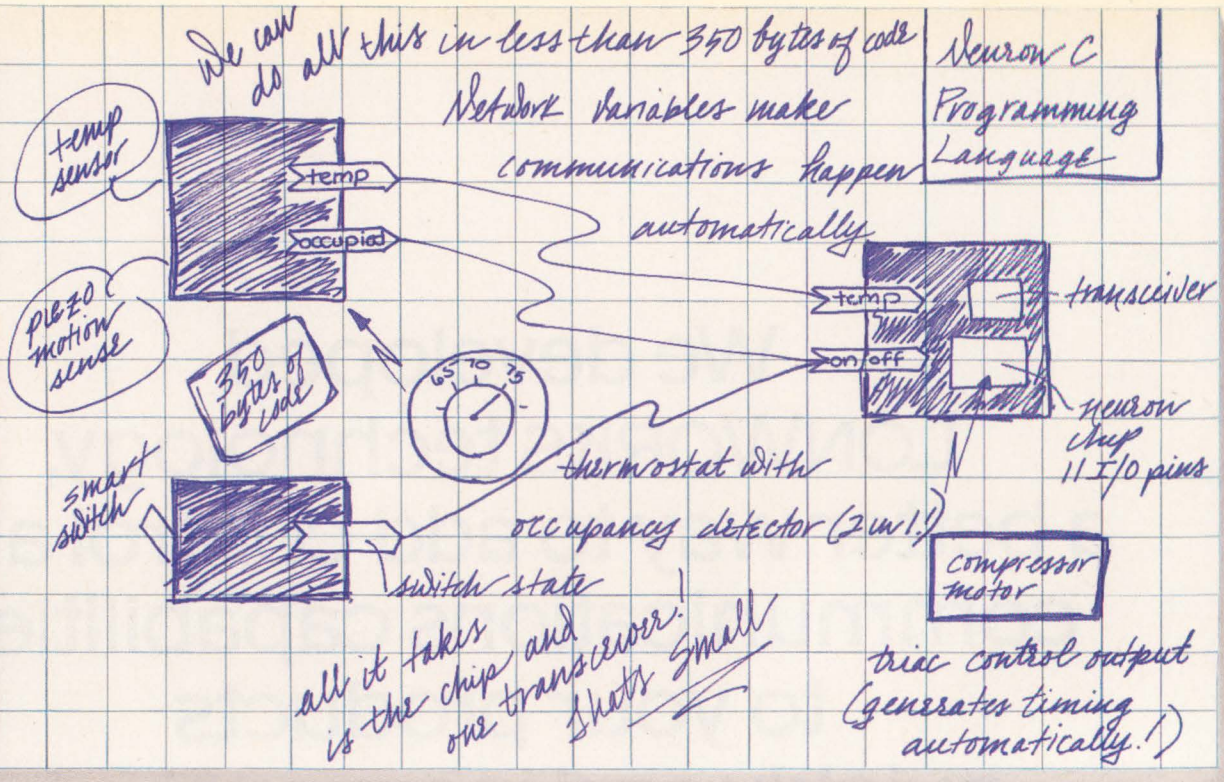 We can
do all this in less than 350 bytes of code
Network Variables make
communications happen
automatically
Neuron C
Programming
Language
temp
sensor
temp
occupied
piezo
motion
sense
350
bytes of
code
65 70 75
temp
on off
transceiver
neuron
chip
11 I/O pins
smart
switch
thermostat with
occupancy detector (2 in 1!)
switch state
compressor
motor
all it takes
is the chip and
one transceiver!
That's Small
triac control output
(generates timing
automatically!)